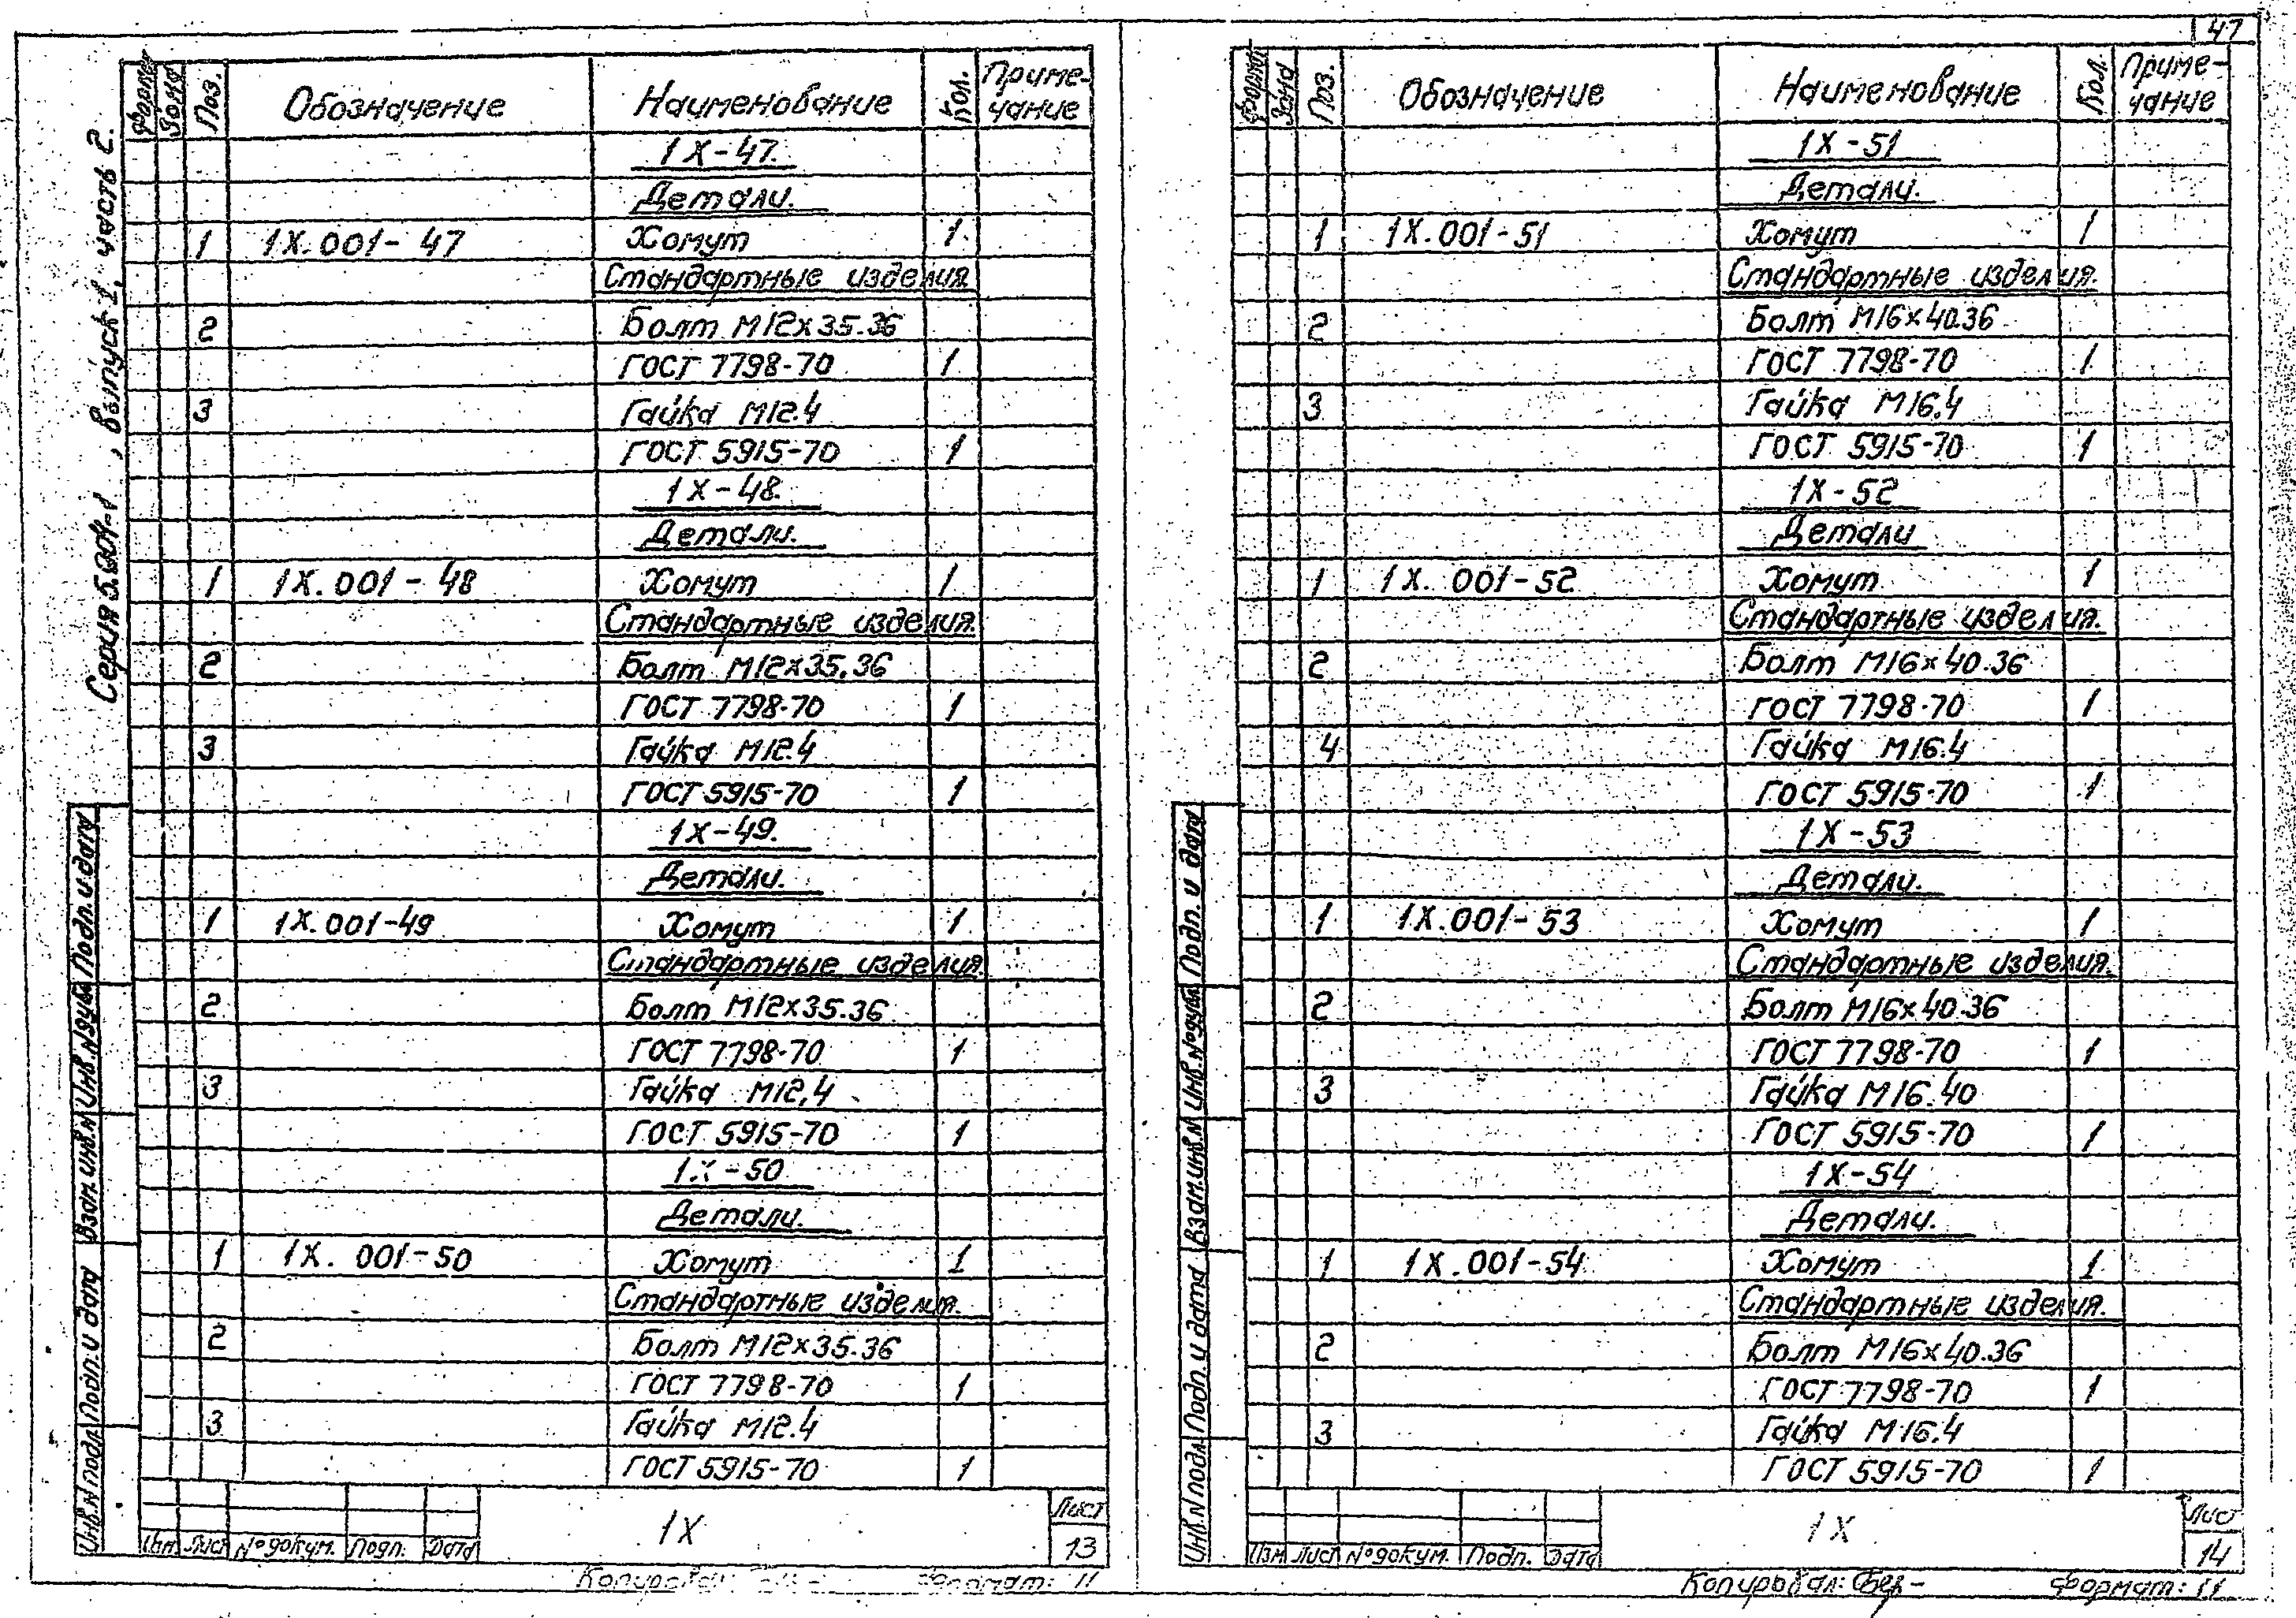 47
Серия 5.904-1, выпуск 1, часть 2.
Формат Зона Поз. Обозначение Наименование Кол. Примечание
1Х-47.
Детали.
1 1Х.001-47 Хомут 1
Стандартные изделия.
2 Болт М12х35.36
ГОСТ 7798-70 1
3 Гайка М12.4
ГОСТ 5915-70 1
1Х-48.
Детали.
1 1Х.001-48 Хомут 1
Стандартные изделия.
2 Болт М12х35.36
ГОСТ 7798-70 1
3 Гайка М12.4
ГОСТ 5915-70 1
1Х-49.
Детали.
1 1Х.001-49 Хомут 1
Стандартные изделия.
2 Болт М12х35.36
ГОСТ 7798-70 1
3 Гайка М12.4
ГОСТ 5915-70 1
1Х-50
Детали.
1 1Х.001-50 Хомут 1
Стандартные изделия.
2 Болт М12х35.36
ГОСТ 7798-70 1
3 Гайка М12.4
ГОСТ 5915-70 1
Инв.N подл. Подп. и дата Взам.инв.N Инв.N дубл. Подп. и дата
Изм Лист N° докум. Подп. Дата
1Х
Лист
13
Копировал Формат: 11
Формат Зона Поз. Обозначение Наименование Кол. Примечание
1Х-51
Детали.
1 1Х.001-51 Хомут 1
Стандартные изделия.
2 Болт М16х40.36
ГОСТ 7798-70 1
3 Гайка М16.4
ГОСТ 5915-70 1
1Х-52
Детали
1 1Х.001-52 Хомут 1
Стандартные изделия.
2 Болт М16х40.36
ГОСТ 7798-70 1
4 Гайка М16.4
ГОСТ 5915-70 1
1Х-53
Детали.
1 1Х.001-53 Хомут 1
Стандартные изделия.
2 Болт М16х40.36
ГОСТ 7798-70 1
3 Гайка М16.40
ГОСТ 5915-70 1
1Х-54
Детали.
1 1Х.001-54 Хомут 1
Стандартные изделия.
2 Болт М16х40.36
ГОСТ 7798-70 1
3 Гайка М16.4
ГОСТ 5915-70 1
Инв.N подл. Подп. и дата Взам.инв.N Инв.N° дубл. Подп. и дата
Изм Лист N° докум. Подп. Дата
1Х
Лист
14
Копировал: Формат: 11